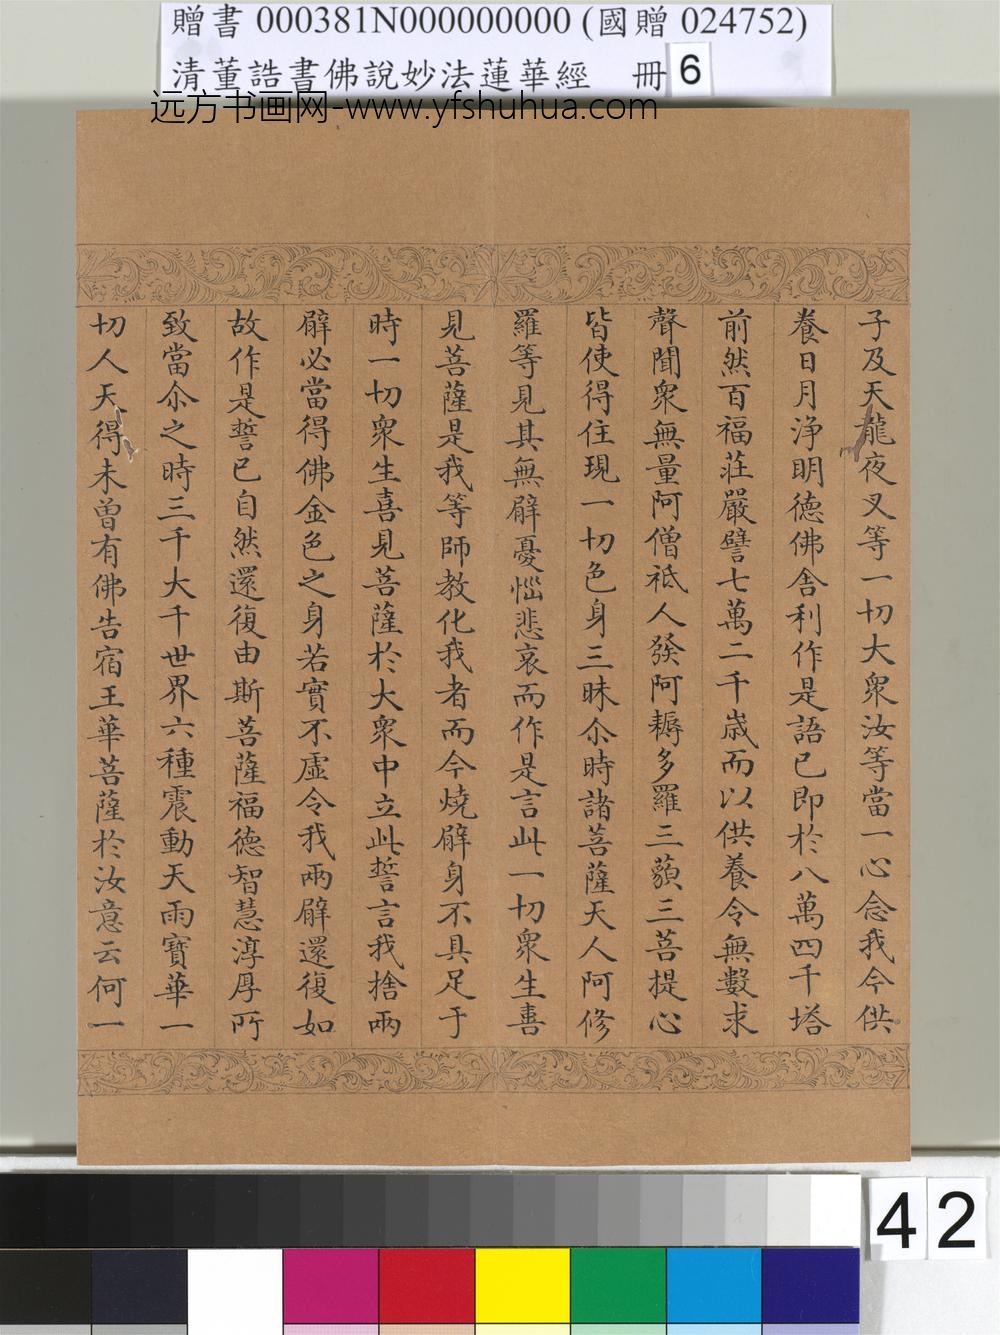 贈書 000381N000000000 (國贈 024752)
清董誥書佛說妙法蓮華經 冊 6
远方书画网-www.yfshuhua.com
子及天龍夜叉等一切大衆汝等當一心念我今供
養日月淨明德佛舍利作是語已即於八萬四千塔
前然百福莊嚴臂七萬二千歲而以供養令無數求
聲聞衆無量阿僧祇人發阿耨多羅三藐三菩提心
皆使得住現一切色身三昧尒時諸菩薩天人阿修
羅等見其無臂憂惱悲哀而作是言此一切衆生喜
見菩薩是我等師教化我者而今燒臂身不具足于
時一切衆生喜見菩薩於大衆中立此誓言我捨兩
臂必當得佛金色之身若實不虛令我兩臂還復如
故作是誓已自然還復由斯菩薩福德智慧淳厚所
致當尒之時三千大千世界六種震動天雨寶華一
切人天得未曾有佛告宿王華菩薩於汝意云何一
42